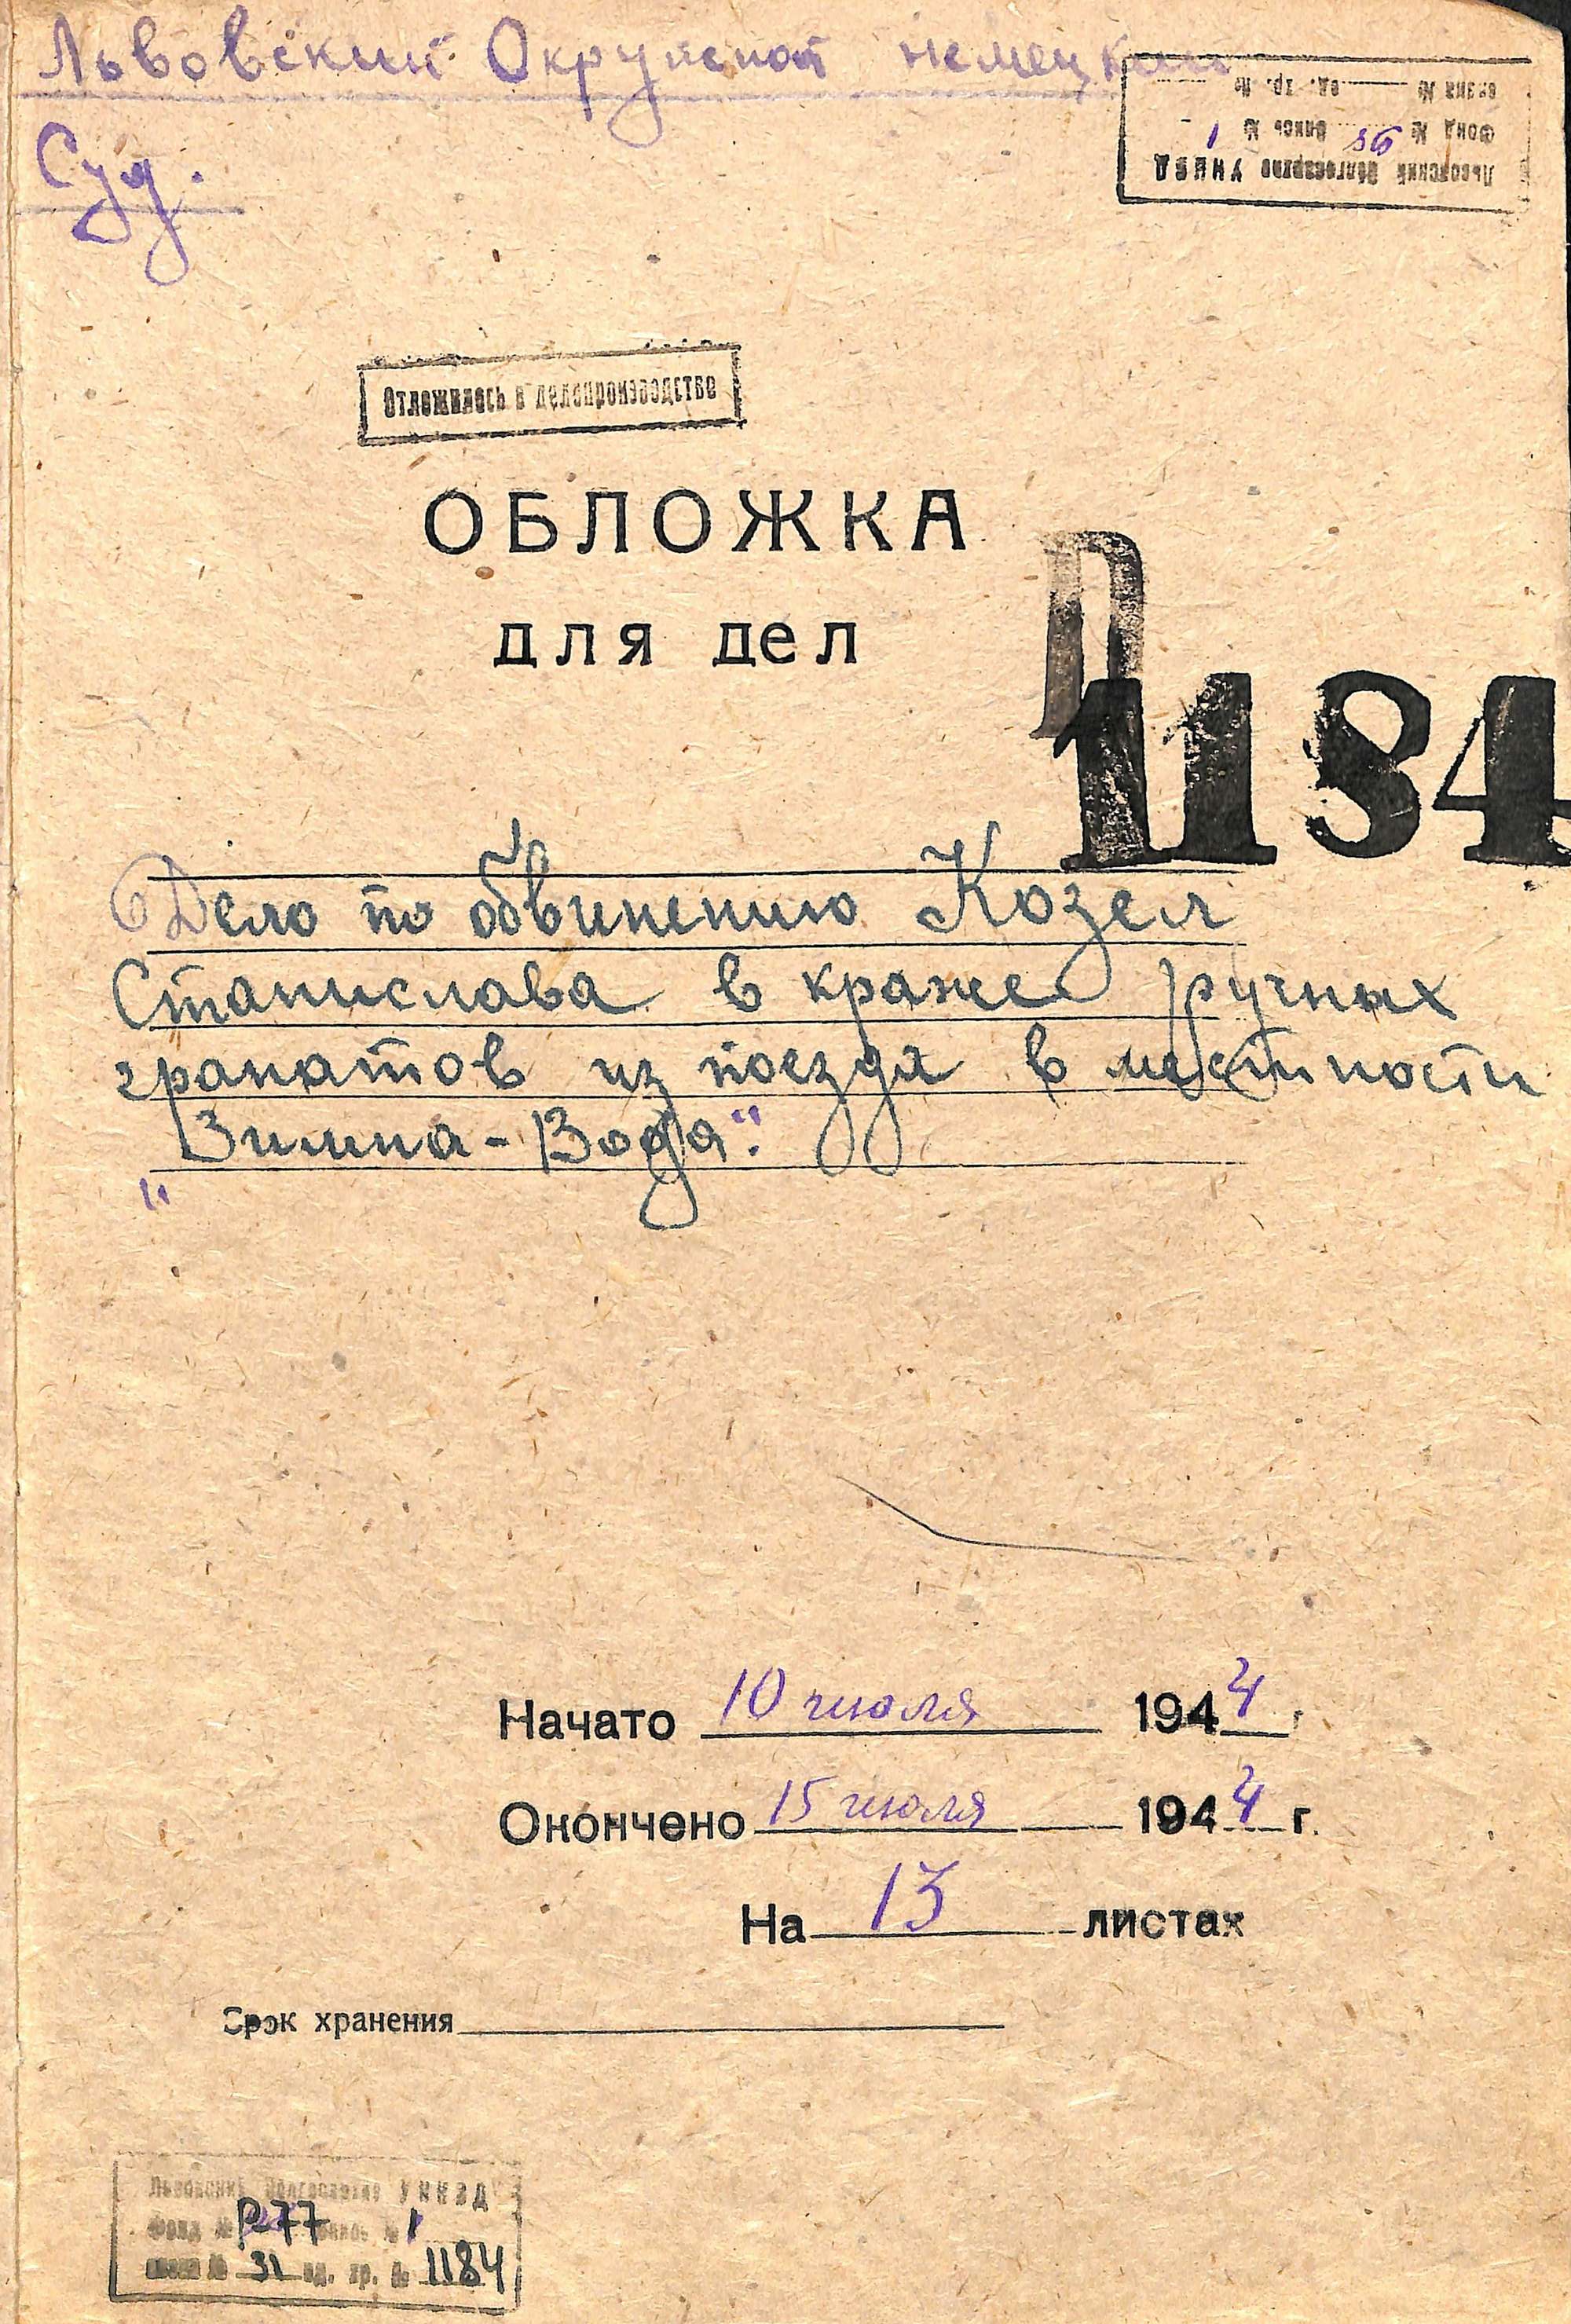 Львовский Окружной немецкий
Суд.
Львовский Облгосархив УНКВД
Фонд № 86 опись № 1
связка № ед. хр. №
Отложилось в делопроизводстве
ОБЛОЖКА
для дел
1184
Дело по обвинению Козел
Станислава в краже ручных
гранатов из поезда в местности
"Зимна-Вода".
Начато 10 июля 1944 г
Окончено 15 июля 1944 г.
На 13 листах
Срок хранения
Львовский Облгосархив УНКВД
Фонд № Р-77 опись № 1
связка № 31 ед. хр. № 1184